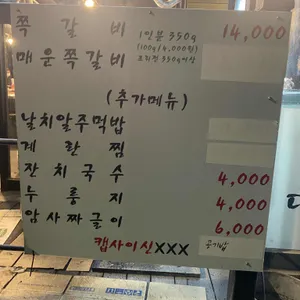 쪽갈비 1인분 350g 14,000
(100g/4,000원)
매운쪽갈비 조리전 350g이상
(추가메뉴)
날치알주먹밥
계란찜
잔치국수 4,000
누룽지 4,000
암사짜글이 6,000
캡사이신XXX 공기밥